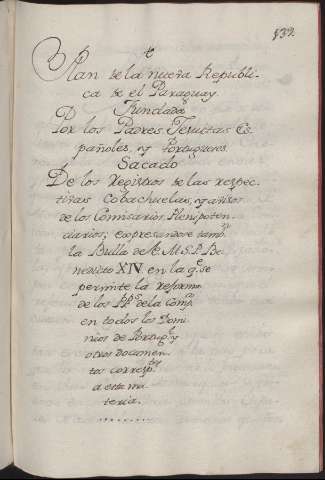 139.
Plan de la nueva Republi-
ca de el Paraguay
Fundada
Por los Padres Jesuitas Es-
pañoles, y Portugueses
Sacado
De los Registros de las respec-
tivas Cobachuelas, y avisos
de los Comisarios Plenipoten-
ciarios; expresandose tambn.
la Bulla de M. S. P. Be-
nedicto XIV en la qe. se
permite la reforma
de los PPs. de la Compa.
en todos los Domi-
nios de Portugl. y
otros documen-
tos corresptes.
a esta ma-
teria.